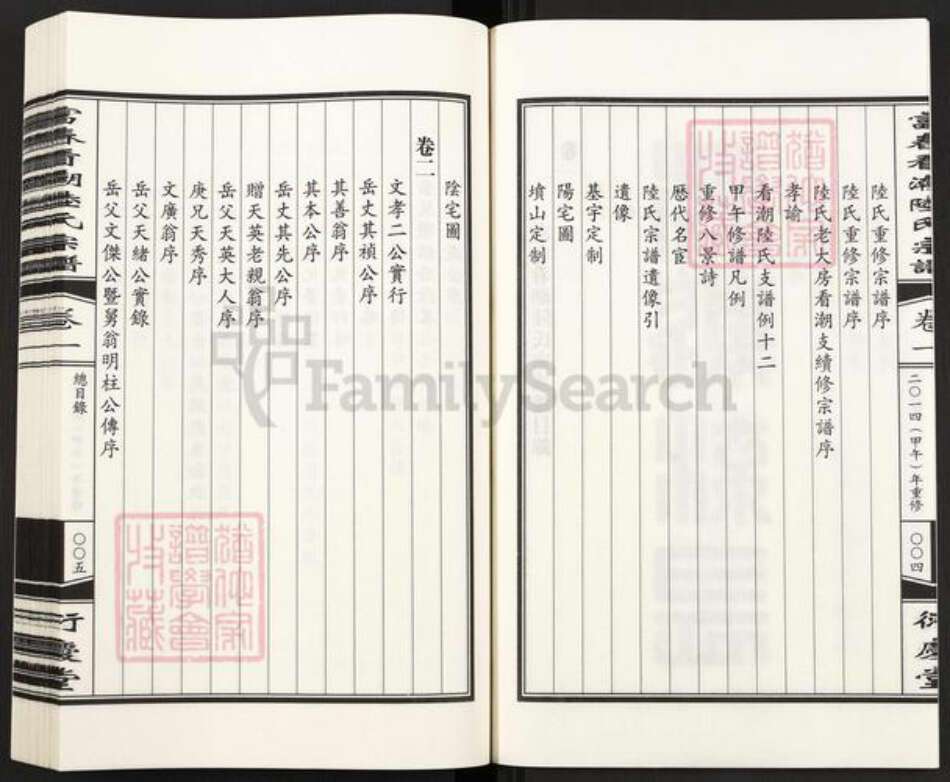 富春看潮陸氏宗譜
卷一
二〇一四（甲午）年重修
〇〇四
衍慶堂
陸氏重修宗譜序
陸氏重修宗譜序
陸氏老大房看潮支續修宗譜序
孝諭
看潮陸氏支譜例十二
甲午修譜凡例
重修八景詩
歷代名宦
陸氏宗譜遺像引
遺像
墓宇定制
陽宅圖
墳山定制
陰宅圖
卷二
文孝二公實行
岳丈其禎公序
其善翁序
其本公序
岳丈其先公序
贈天英老親翁序
岳父天英大人序
庚兄天秀序
文廣翁序
岳父天緒公實錄
岳父文傑公暨舅翁明柱公傳序
富春看潮陸氏宗譜
卷一
總目錄
〇〇五
衍慶堂
FamilySearch
譜學會
收藏